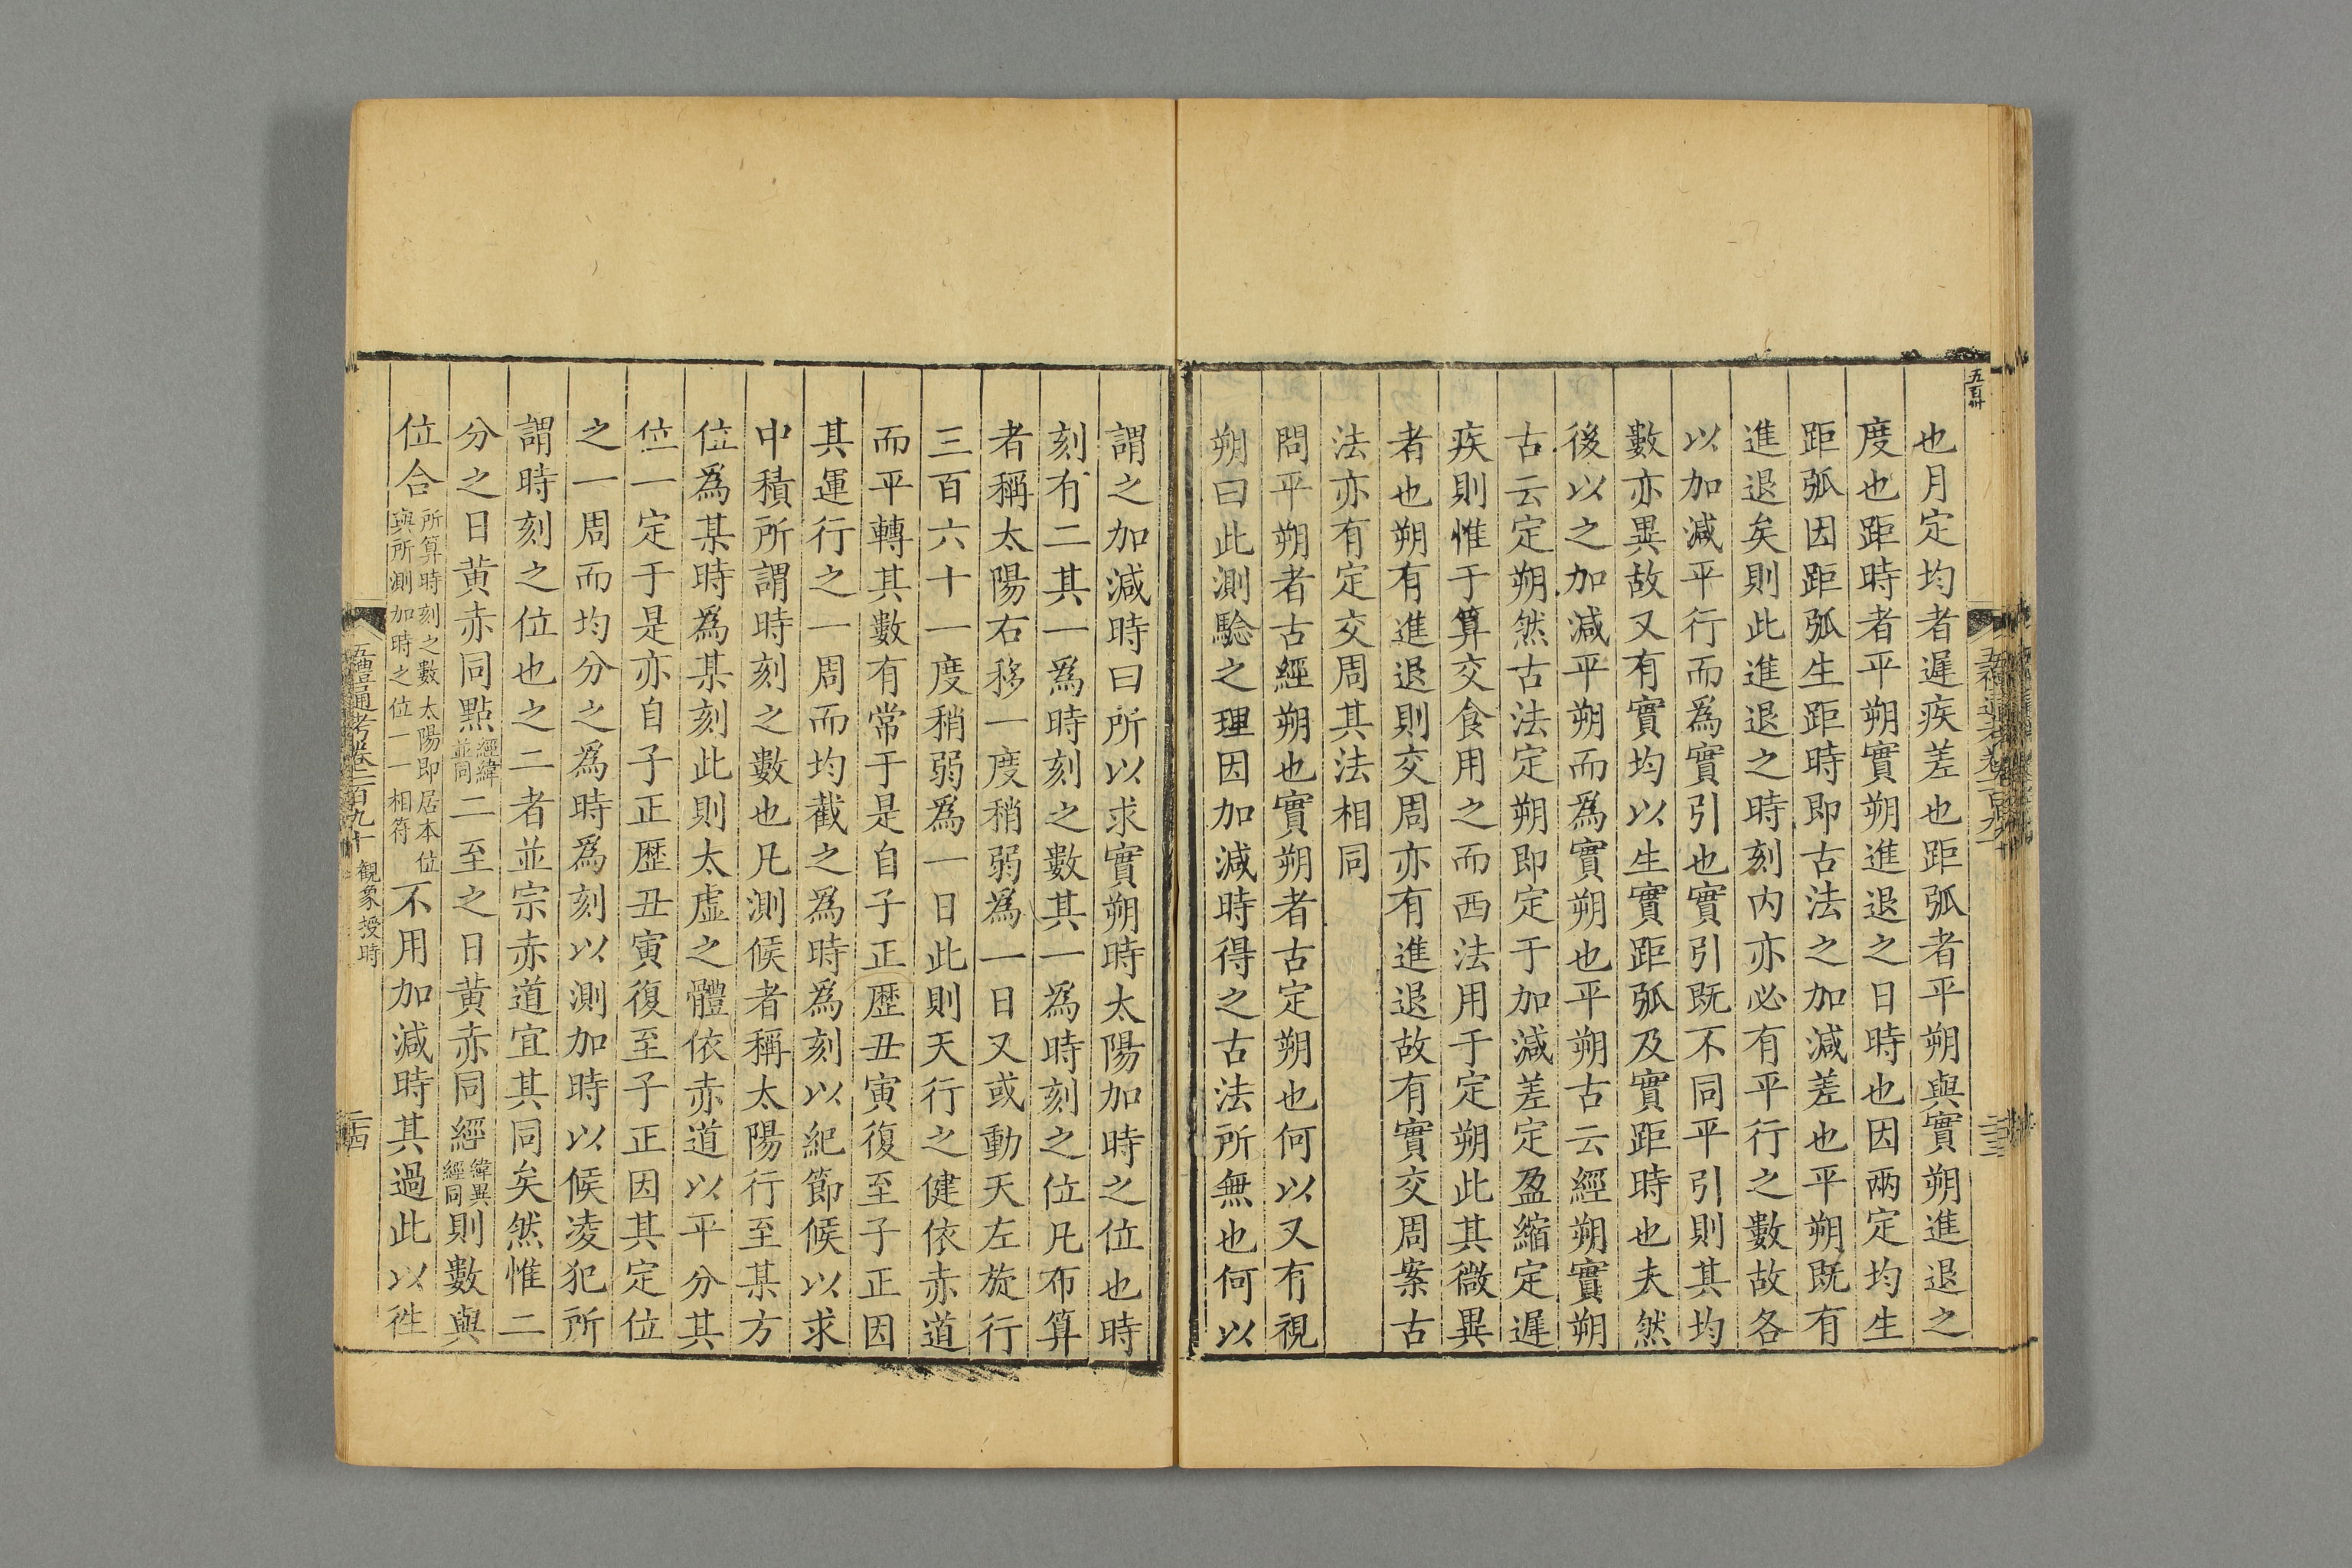 五百卅
也月定均者遲疾差也距弧者平朔與實朔進退之
度也距時者平朔實朔進退之日時也因兩定均生
距弧因距弧生距時即古法之加減差也平朔既有
進退矣則此進退之時刻内亦必有平行之數故各
以加減平行而為實引也實引既不同平引則其均
數亦異故又有實均以生實距弧及實距時也夫然
後以之加減平朔而為實朔也平朔古云經朔實朔
古云定朔然古法定朔即定于加減差定盈縮定遲
疾則惟于算交食用之而西法用于定朔此其微異
者也朔有進退則交周亦有進退故有實交周案古
法亦有定交周其法相同
問平朔者古經朔也實朔者古定朔也何以又有視
朔曰此測驗之理因加減時得之古法所無也何以
謂之加減時曰所以求實朔時太陽加時之位也時
刻有二其一為時刻之數其一為時刻之位凡布算
者稱太陽右移一度稍弱為一日又或動天左旋行
三百六十一度稍弱為一日此則天行之健依赤道
而平轉其數有常于是自子正歷丑寅復至子正因
其運行之一周而均截之為時為刻以紀節候以求
中積所謂時刻之數也凡測候者稱太陽行至某方
位為某時為某刻此則太虛之體依赤道以平分其
位一定于是亦自子正歷丑寅復至子正因其定位
之一周而均分之為時為刻以測加時以候凌犯所
謂時刻之位也之二者並宗赤道宜其同矣然惟二
分之日黃赤同點經緯並同二至之日黃赤同經緯異經同則數與
位合所算時刻之數太陽即居本位與所測加時之位一一相符不用加減時其過此以徃
五禮通考卷一百九十 觀象授時 二十四